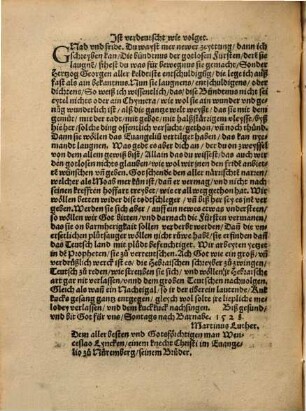 Ist verdeutscht wie volget.
Gnad vnd fride. Du wayst mer newer zeyttung/ dann ich
schreyben kan/ Die Bündtnus der gotlosen Fürsten/ derẽ sie
laugnẽ/ sihest du was für bewegung sie gemacht/ Sonder
Hertzog Georgen aller keltiste entschuldigũg/ die lege ich auß
fast als ein bekentnus. Aber sie laugnens/ entschuldigens/ oder
dichtens/ So weiß ich wissentlich/ das/ dise Bündtnus nicht sei
eytel nichts oder ein Chymera/ wie wol sie ein wunder vnd ge-
nůg wunderlich ist/ als die gantz welt weyßt/ das sie mit dem
gemüt/ mit der tadt/ mit gebot/ mit halßstarrigem vleysse/ byß
hieher/ solche ding offentlich versůcht/ gethon/ vñ noch thůnd.
Dann sie wöllen das Euangeliũ vertilget haben/ das kan nye-
mandt laugnen. Was gedt es aber dich an/ der du on zweyffel
von dem allem gewiß bist/ Allain du wissest/ das auch wir
den gotlosen nicht glauben/ wie wol wir jnen den fridẽ anbie-
ten wünschen vñ geben. Got schende den aller närrischt narren/
welcher als Moab mer künst/ dañ er vermag/ vnd nicht nach
seinen krefften hoffart treybet/ wie er allweg gethon hat. Wir
wöllen betten wider dise todschleger/ vñ biß her sey es jnẽ ver-
geben. Werden sie sich aber/ auff ein newes etwas vnderstehn/
so wöllen wir Got bitten/ vnd darnach die Fürsten vermanen/
das sie on barmhertigkait söllen verderbt werden/ Dañ die vn-
ersetlichen plůtsauger wöllen nicht růwen/ sie befinden dañ das
Teutsch land mit plůde befeuchtiget. Wir arbeyten yetzet
in dẽ Propheten/ sie zu verteutschen. Ach Got wie ein groß/ vñ
verdrüßlich werck ist es/ die Hebraischen schreyber zu zwingen/
Teutsch zu reden/ wie streuben sie sich/ vnd wöllen jr Hebraisch
art gar nicht verlassen/ vnd dem groben Teutschen nachuolgen.
Gleich als wañ ein Nachtigal/ so sy der iren lautenden/ Kuck-
kucks gesang gantz entgegen/ gleych wol solte jre liepliche melo-
ley verlassen/ vnd dem kuckuck nachsingen. Biß gesund/
vnd bit Got für vns/ Sontags nach Barnabe. 1528.
Martinus Luther.
Dem aller besten vnd Gotsförchtigen man Wen-
ceslao Lyncken/ einem knecht Christi im Euange-
lio zu Nüremberg/ seinem Brüder.